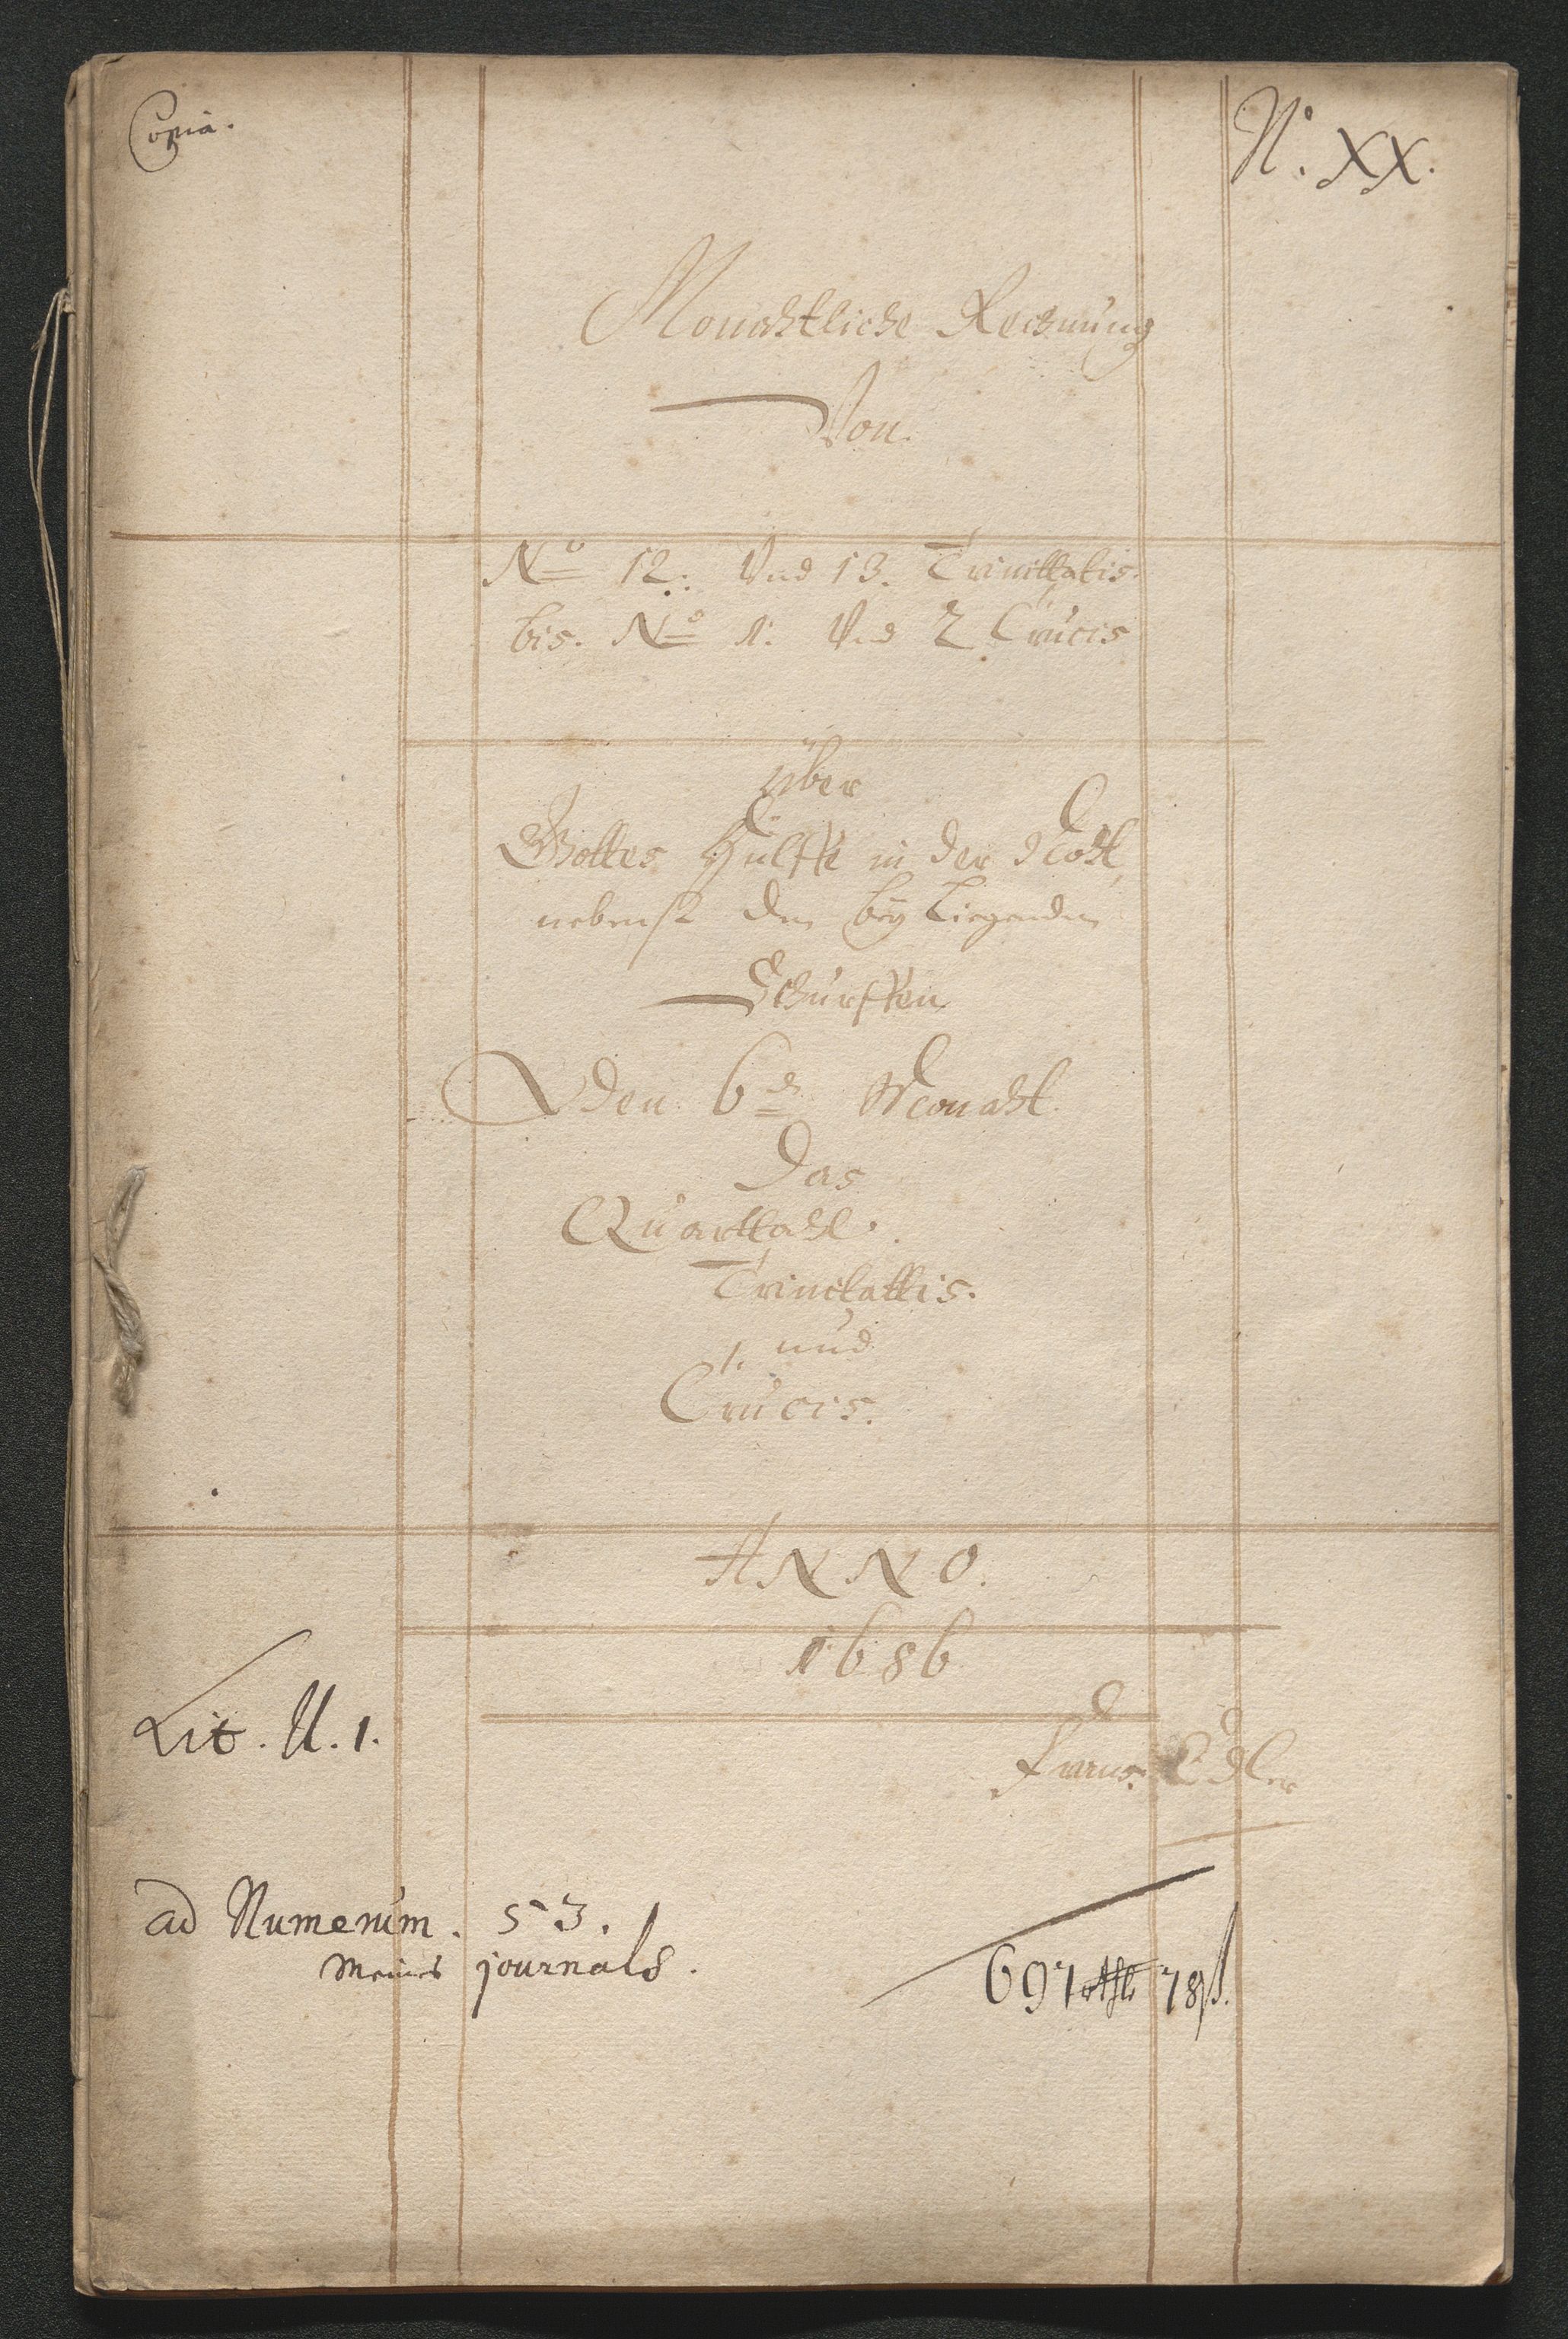 Copia.
No. XX.
Monahtliche Rechnung
Von.
No 12: Und 13. Trinittatis.
bis. No 1: Und 2 Crucis
über
Gottes Hülffe in der Noht,
nebenst den beÿ liegenden
Schürffen
Den 6ts Monaht.
Das
Quarttahl.
Trinitattis.
1. und
Crucis.
ANNO.
1686
Lit. U. 1.
ad Numerum. 53.
meines journals.
697 rthlr 78 ß.